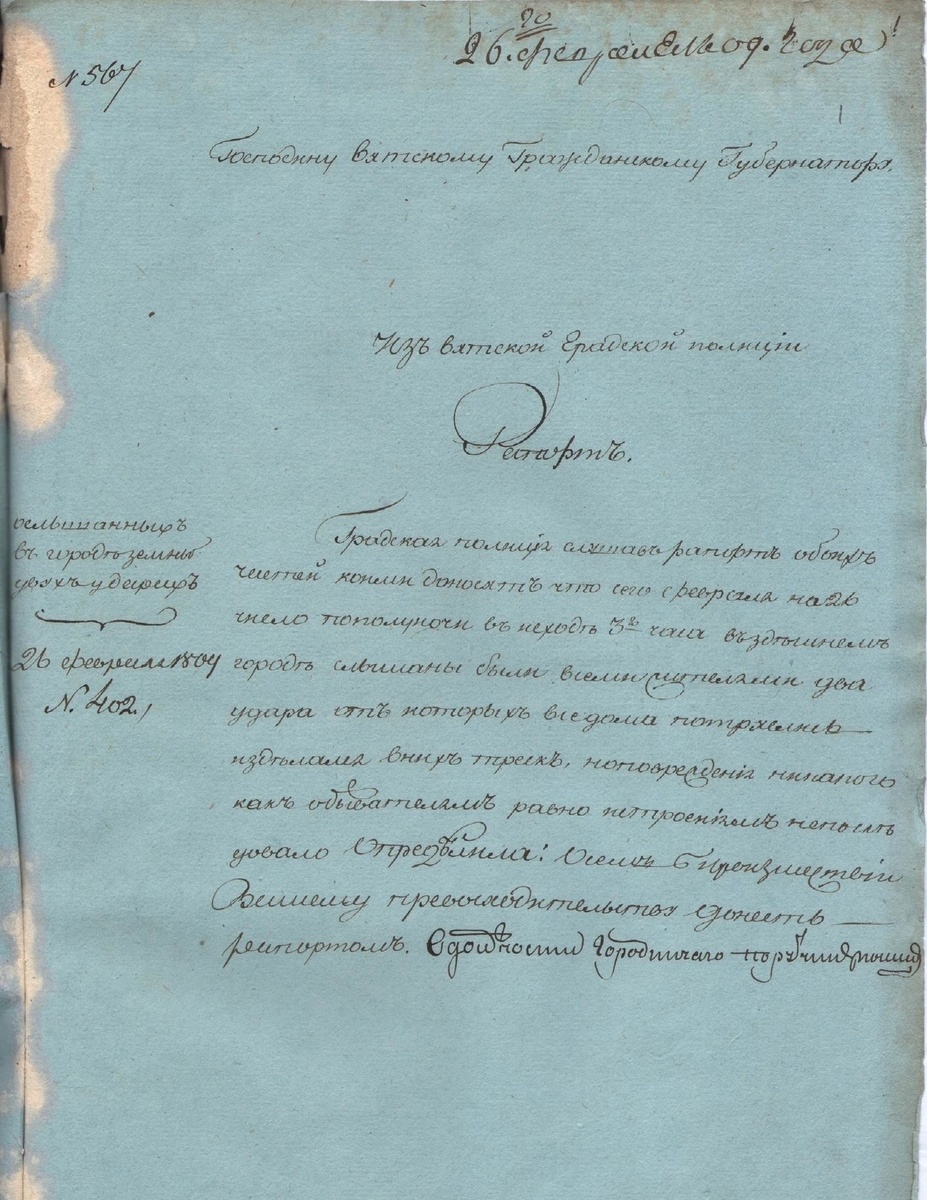 26. го февраля 1809. года
№ 567
Господину вятскому Гражданскому Губернатору.
Изъ вятской Градской полицiи
Рапортъ.
ослышанныхъ
въ городѣ земны
ударахъ
26 февраля 1809
№. 402.
Градская полицiя слушавъ рапортъ обоихъ
частей коими доносятъ что сего февраля на 26
число пополуночи въ исходѣ 3го часа въздѣшнемъ
городѣ слышаны были всеми жителями два
удара отъ которыхъ все дома потряслись
издѣлался внихъ трескъ, ноповрежденiя никакого
какъ обывателямъ равно истроенiямъ непослѣ
довало Определила: Осемъ произшествiи
Вашему превосходительству донесть
репортомъ. Вдолжности Городничаго